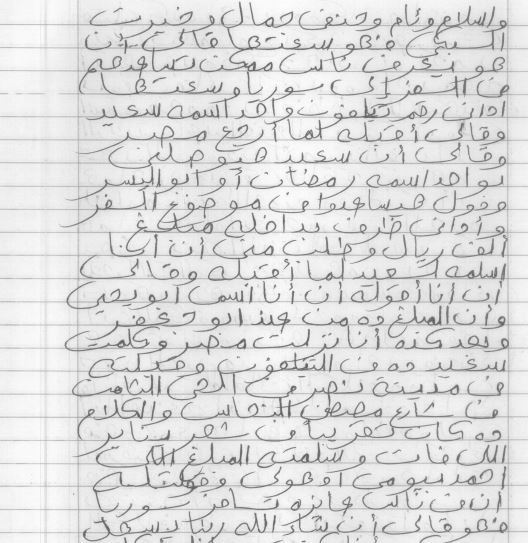 واسلام وئام وحنف جمال و خيرت
السبكي فهو سعتها قالي أن
هو يعرف ناس ممكن تساعدهم
من السفر إلى سوريا وسعتها
اداني رقم تليفون واحد اسمه سعيد
وقالي أقبله لما أرجع مصر
وقالي أن سعيد هيوصلني
بواحد اسمه رمضان أو ابو اليسر
ودول هيساعدوا في موضوع السفر
وأداني ظرف بداخله مبلغ
ألف ريال وطلب مني أن أنا
اسلمه لسعيد لما أقبله وقالي
أن أنا أقوله أن أنا اسمي ابو يحيي
وأن المبلغ ده من عند ابو جعفر
وبعد كده أنا نزلت مصر وكلمت
سعيد ده في التليفون وقبلته
في مدينة نصر في الحي الثامن
في شارع مصطفى النحاس والكلام
ده كان تقريباً في شهر يناير
اللي فات وسلمته المبلغ اللي
احمد بيومي ادهولي وقولتله
أن في ناس عايزه تسافر سوريا
فهو قالي أن شاء الله ربنا يسهل